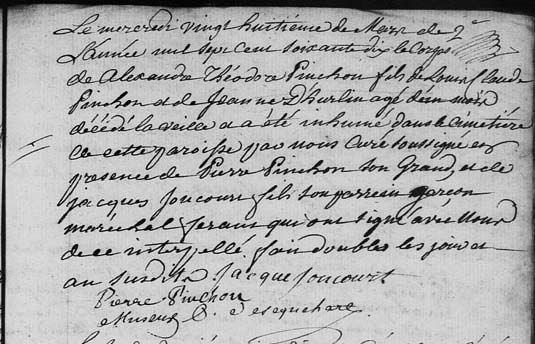 Le mercredi vingt huitième de Mars de
L'année mil sept cent soixante dix le Corps
de Alexandre Théodore Pinchon fils de Louis Claude
Pinchon et de Jeanne Dhurlin agé d'un mois
décédé la veille a été inhumé dans le cimetière
de cette paroisse par nous Curé soussigné en
presence de Pierre Pinchon son Grand, et de
jacques joncourt fils son parrein garcon
marechal ferant qui ont signé avec nous
de ce interpellé fait double les jour et
an susdits. jacque joncourt
Pierre Pinchon